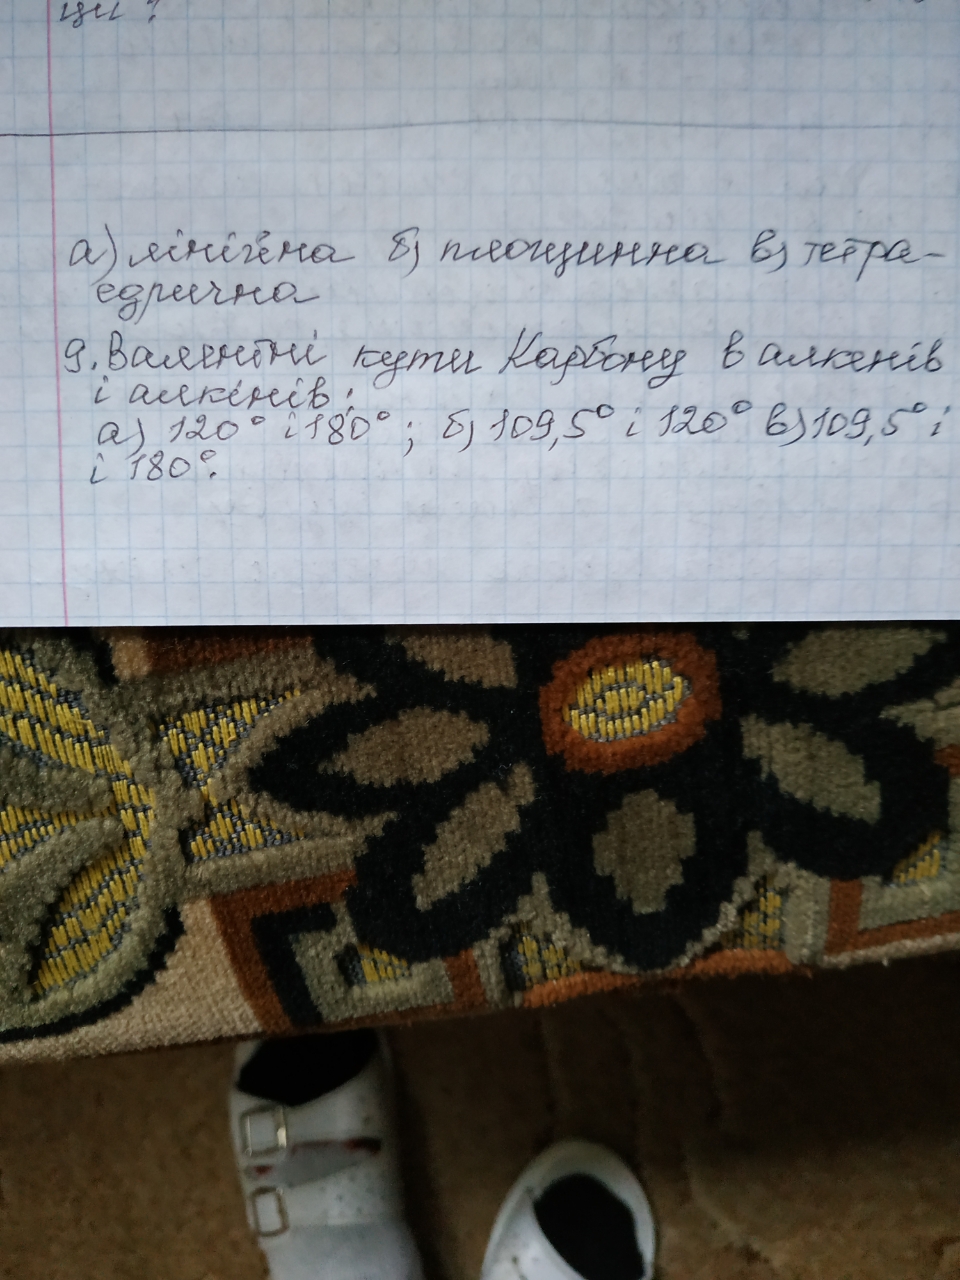 ци?
а) лінійна б) площинна в) тетра-
едрична
9. Валентні кути Карбону в алкенів
і алкінів:
а) 120° і 180°; б) 109,5° і 120° в) 109,5° і
і 180°.